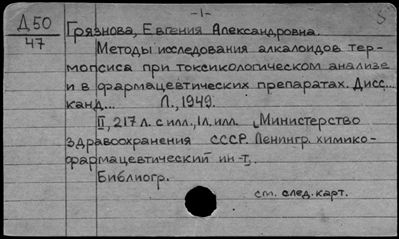 -1-
Д50
47
Грязнова, Евгения Александровна.
Методы исследования алкалоидов тер-
мопсиса при токсикологическом анализе
и в фармацевтических препаратах. Дисс...
канд... Л., 1949.
II, 217 л. с илл., 1 л. илл. (Министерство
здравоохранения СССР. Ленингр. химико-
фармацевтический ин-т).
Библиогр.
см. след. карт.